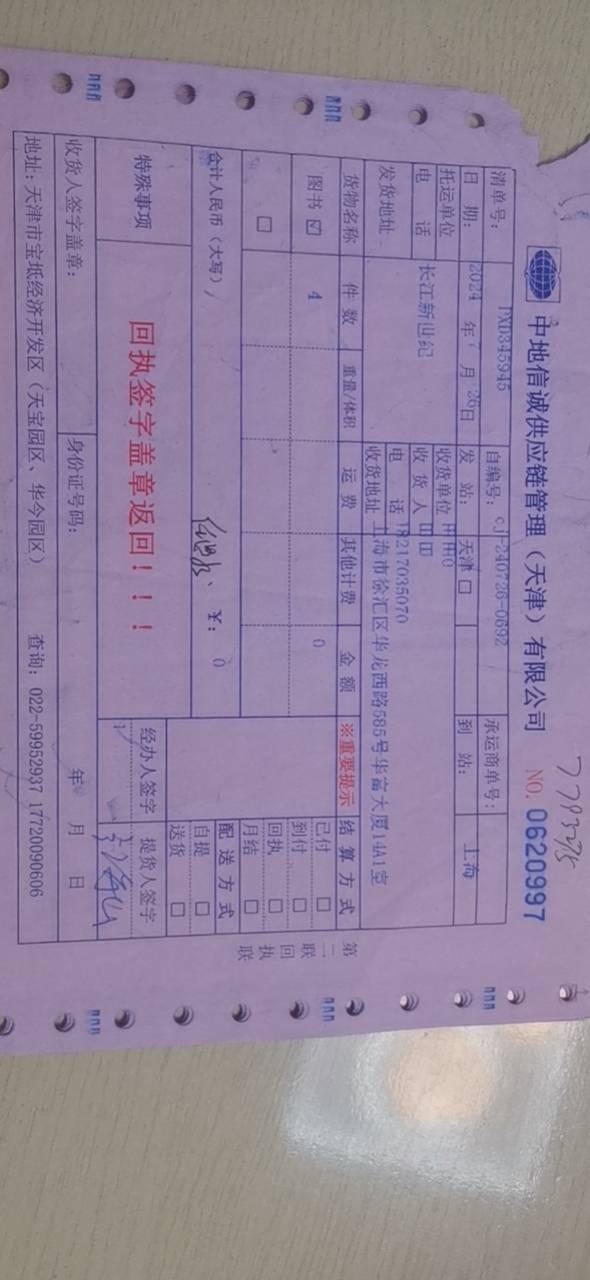 中地信诚供应链管理（天津）有限公司 NO. 0620997
清单号： 自编号：CJ-240726-0692 承运商单号：
日 期： 2024 年 7 月 26 日 发 站： 天津 □ 到 站： 上海
托运单位 收货单位
电 话 长江新世纪 收 货 人
电 话 18217035070
发货地址 收货地址
货物名称 件 数 重量/体积 运 费 其他计费 金 额 ※重要提示 结 算 方 式
图书 ☑ 4 0 已付 □
到付 □
□ 回执 □
月结 □
合计人民币（大写） ¥： 0 配 送 方 式
自提 □
送货 □
特殊事项 回执签字盖章返回！！！ 经办人签字 提货人签字
收货人签字盖章： 身份证号码： 年 月 日
地址：天津市宝坻经济开发区（天宝园区、华今园区） 查询：022-59952937 17720090606
第二联 回执联